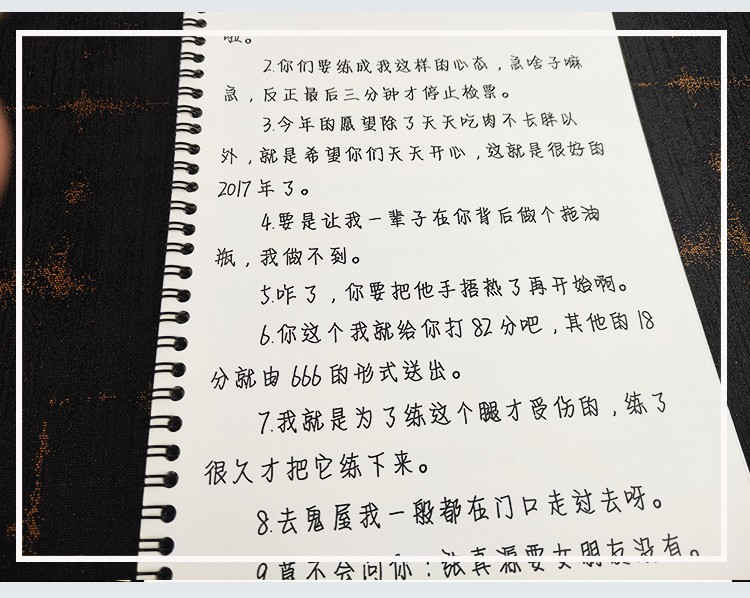 啦。
2.你们要练成我这样的心态，急啥子嘛
急，反正最后三分钟才停止检票。
3.今年的愿望除了天天吃肉不长胖以
外，就是希望你们天天开心，这就是很好的
2017年了。
4.要是让我一辈子在你背后做个拖油
瓶，我做不到。
5.咋了，你要把他手捂热了再开始啊。
6.你这个我就给你打82分吧，其他的18
分就由666的形式送出。
7.我就是为了练这个腿才受伤的，练了
很久才把它练下来。
8.去鬼屋我一般都在门口走过去呀。
9.莫不会问你：张真源要女朋友没有。